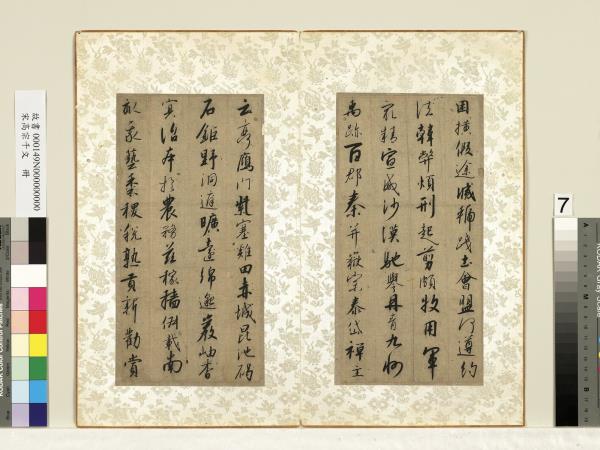 困橫假途滅虢踐土會盟何遵約
法韓弊煩刑起翦頗牧用軍
最精宣威沙漠馳譽丹青九州
禹跡百郡秦并嶽宗泰岱禪主
云亭鴈門紫塞雞田赤城昆池碣
石鉅野洞庭曠遠綿邈巖岫杳
冥治本於農務茲稼穡俶載南
畝我藝黍稷稅熟貢新勸賞
故書 000149N000000000
宋高宗千文 冊
7